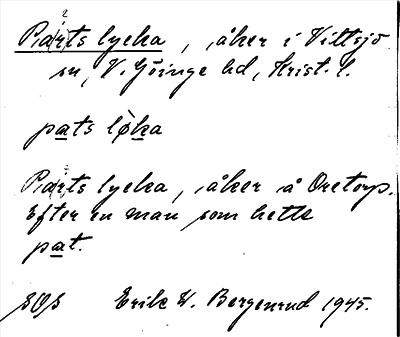 Pa(r)ts lycka, åker i Vittsjö
sn, V. Göinge hd, Krist. l.
pats lø̀ka
Pa(r)ts lycka, åker å Oretorp.
Efter en man som hette
pat.
Erik W. Bergenrud 1945.